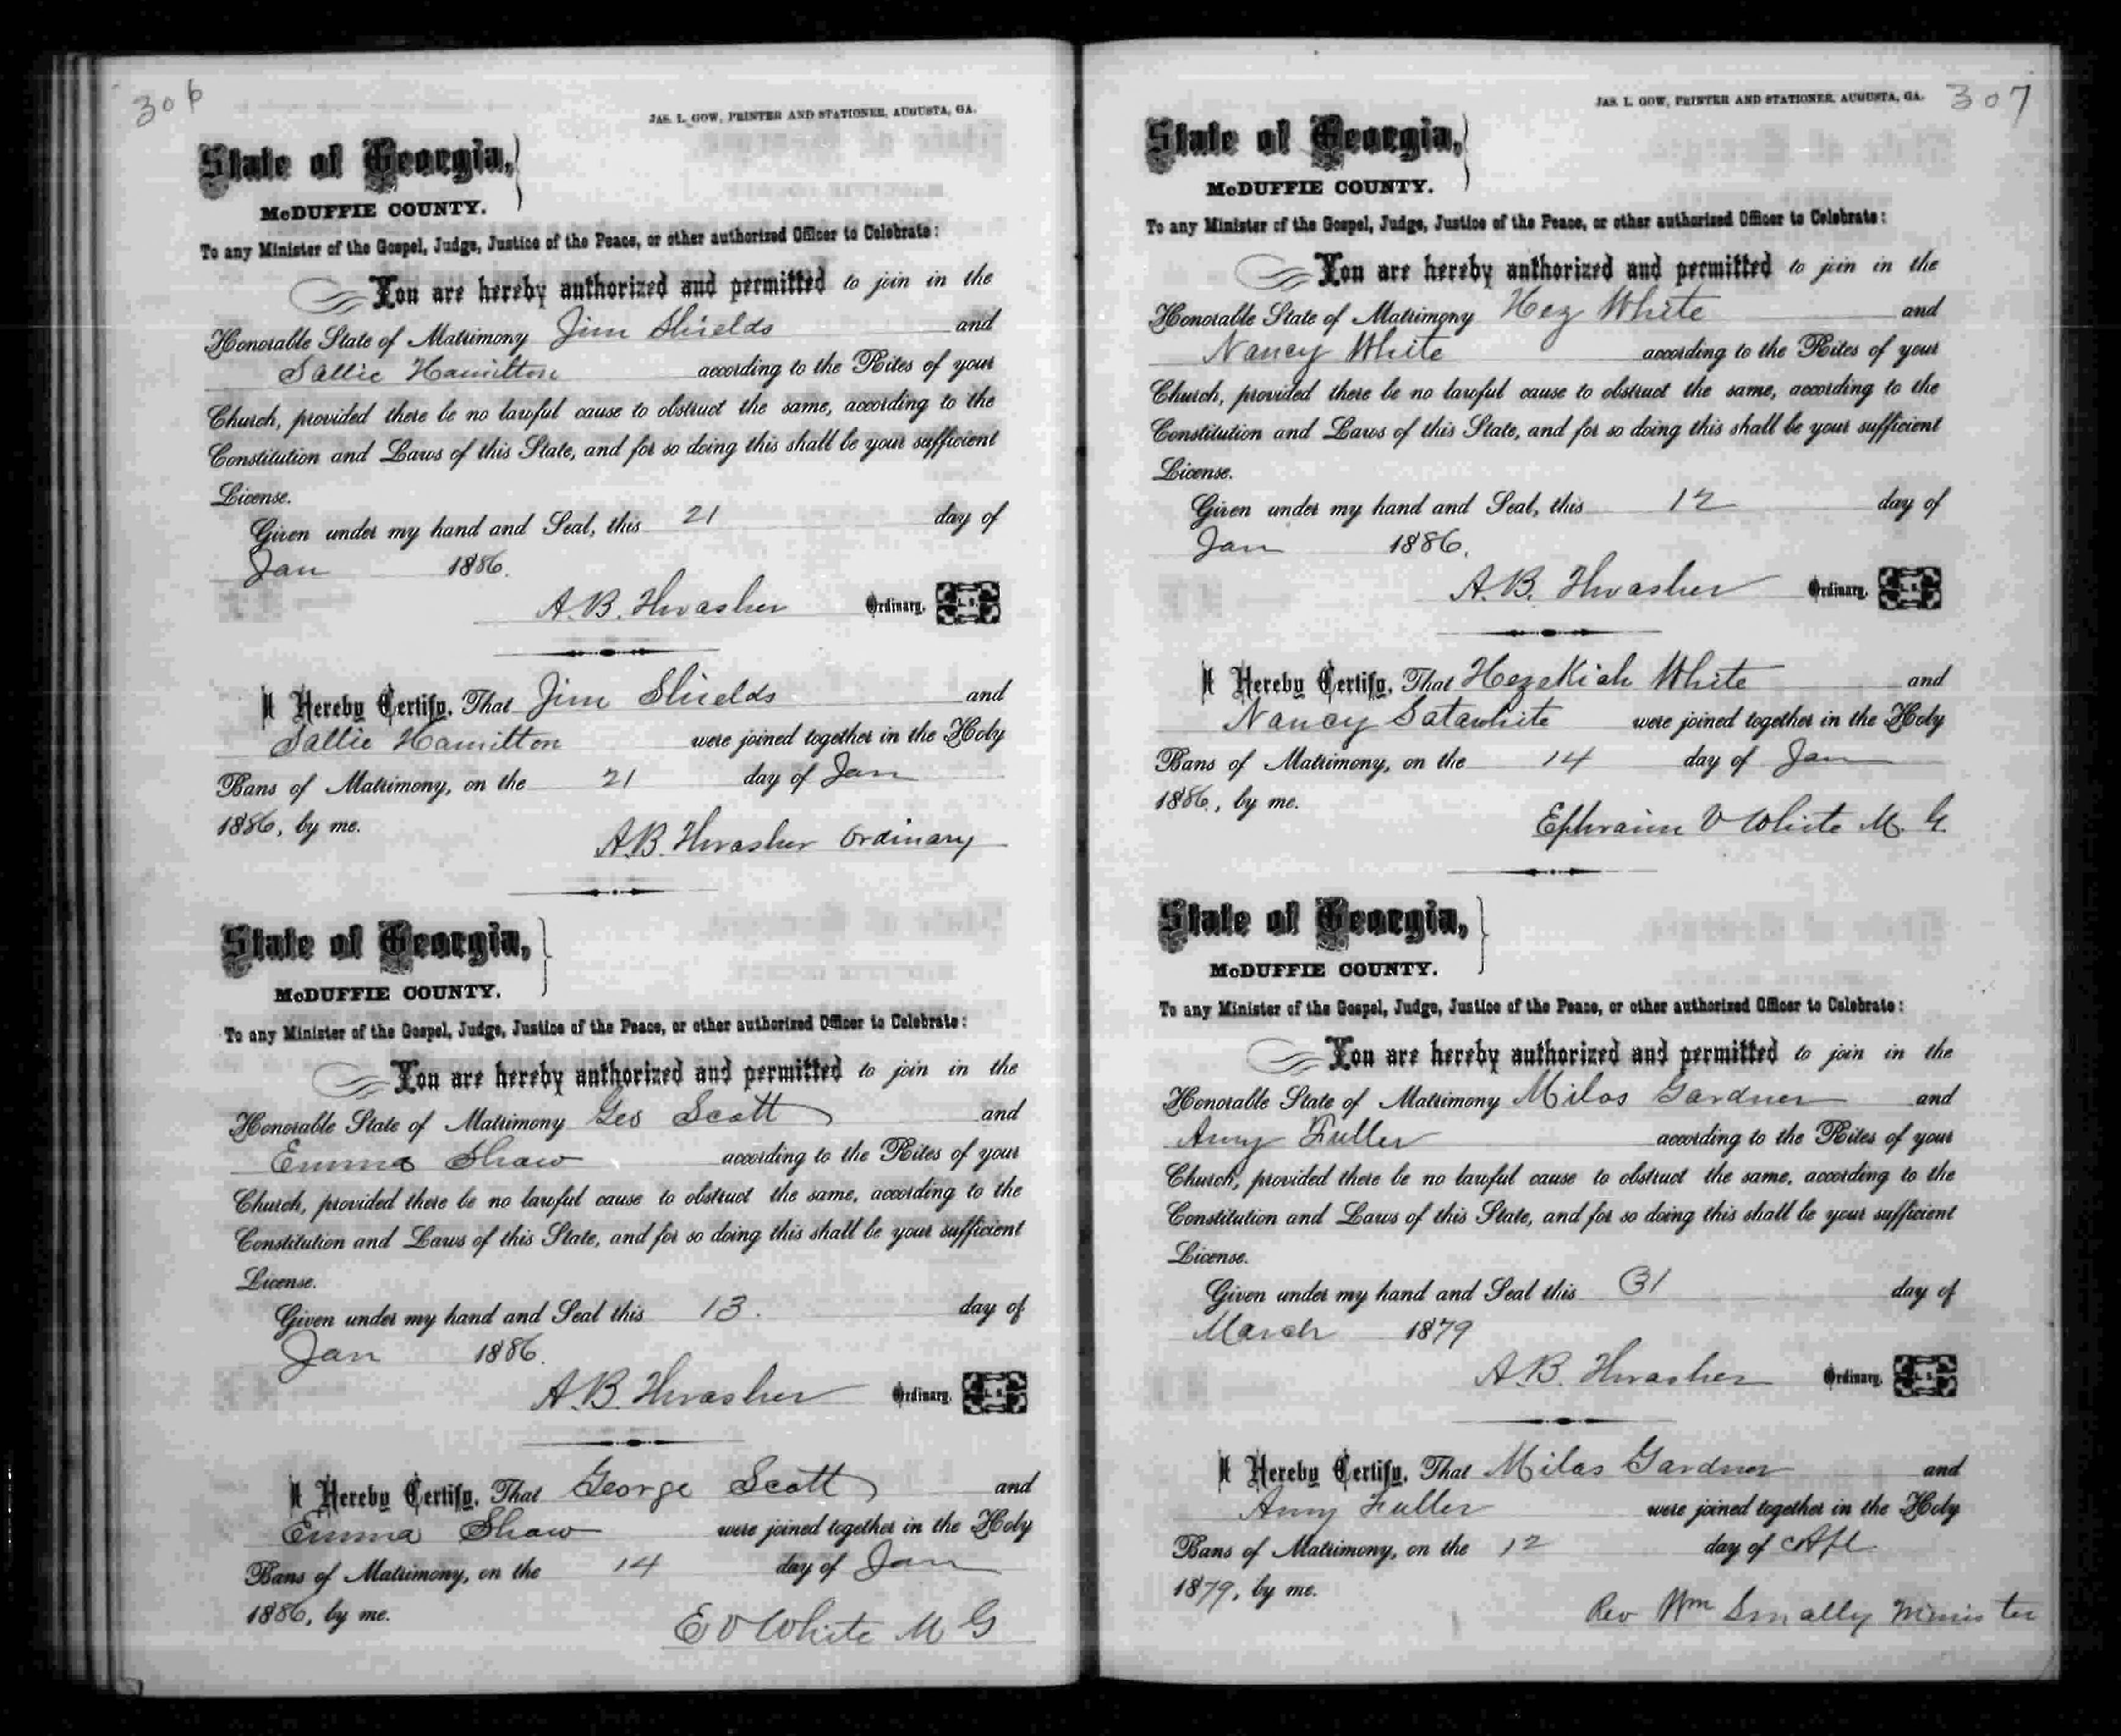 306
JAS. L. GOW, PRINTER AND STATIONER, AUGUSTA, GA.
State of Georgia,
McDUFFIE COUNTY.
To any Minister of the Gospel, Judge, Justice of the Peace, or other authorized Officer to Celebrate:
You are hereby authorized and permitted to join in the
Honorable State of Matrimony Jim Shields and
Sallie Hamilton according to the Rites of your
Church, provided there be no lawful cause to obstruct the same, according to the
Constitution and Laws of this State, and for so doing this shall be your sufficient
License.
Given under my hand and Seal, this 21 day of
Jan 1886.
A.B. Thrasher Ordinary. L. S.
I Hereby Certify, That Jim Shields and
Sallie Hamilton were joined together in the Holy
Bans of Matrimony, on the 21 day of Jan
1886, by me.
A.B. Thrasher Ordinary
State of Georgia,
McDUFFIE COUNTY.
To any Minister of the Gospel, Judge, Justice of the Peace, or other authorized Officer to Celebrate:
You are hereby authorized and permitted to join in the
Honorable State of Matrimony Geo Scott and
Emma Shaw according to the Rites of your
Church, provided there be no lawful cause to obstruct the same, according to the
Constitution and Laws of this State, and for so doing this shall be your sufficient
License.
Given under my hand and Seal this 13. day of
Jan 1886.
A.B. Thrasher Ordinary. L. S.
I Hereby Certify, That George Scott and
Emma Shaw were joined together in the Holy
Bans of Matrimony, on the 14 day of Jan
1886, by me.
E V White M G
307
JAS. L. GOW, PRINTER AND STATIONER, AUGUSTA, GA.
State of Georgia,
McDUFFIE COUNTY.
To any Minister of the Gospel, Judge, Justice of the Peace, or other authorized Officer to Celebrate:
You are hereby authorized and permitted to join in the
Honorable State of Matrimony Hez White and
Nancy White according to the Rites of your
Church, provided there be no lawful cause to obstruct the same, according to the
Constitution and Laws of this State, and for so doing this shall be your sufficient
License.
Given under my hand and Seal, this 12 day of
Jan 1886.
A.B. Thrasher Ordinary. L. S.
I Hereby Certify, That Hezekiah White and
Nancy Satawhite were joined together in the Holy
Bans of Matrimony, on the 14 day of Jan
1886, by me.
Ephraim V White M. G.
State of Georgia,
McDUFFIE COUNTY.
To any Minister of the Gospel, Judge, Justice of the Peace, or other authorized Officer to Celebrate:
You are hereby authorized and permitted to join in the
Honorable State of Matrimony Milos Gardner and
Amy Fuller according to the Rites of your
Church, provided there be no lawful cause to obstruct the same, according to the
Constitution and Laws of this State, and for so doing this shall be your sufficient
License.
Given under my hand and Seal this 31 day of
March 1879
A.B. Thrasher Ordinary. L. S.
I Hereby Certify, That Milas Gardner and
Amy Fuller were joined together in the Holy
Bans of Matrimony, on the 12 day of Apl
1879, by me.
Rev Wm Smally Minister